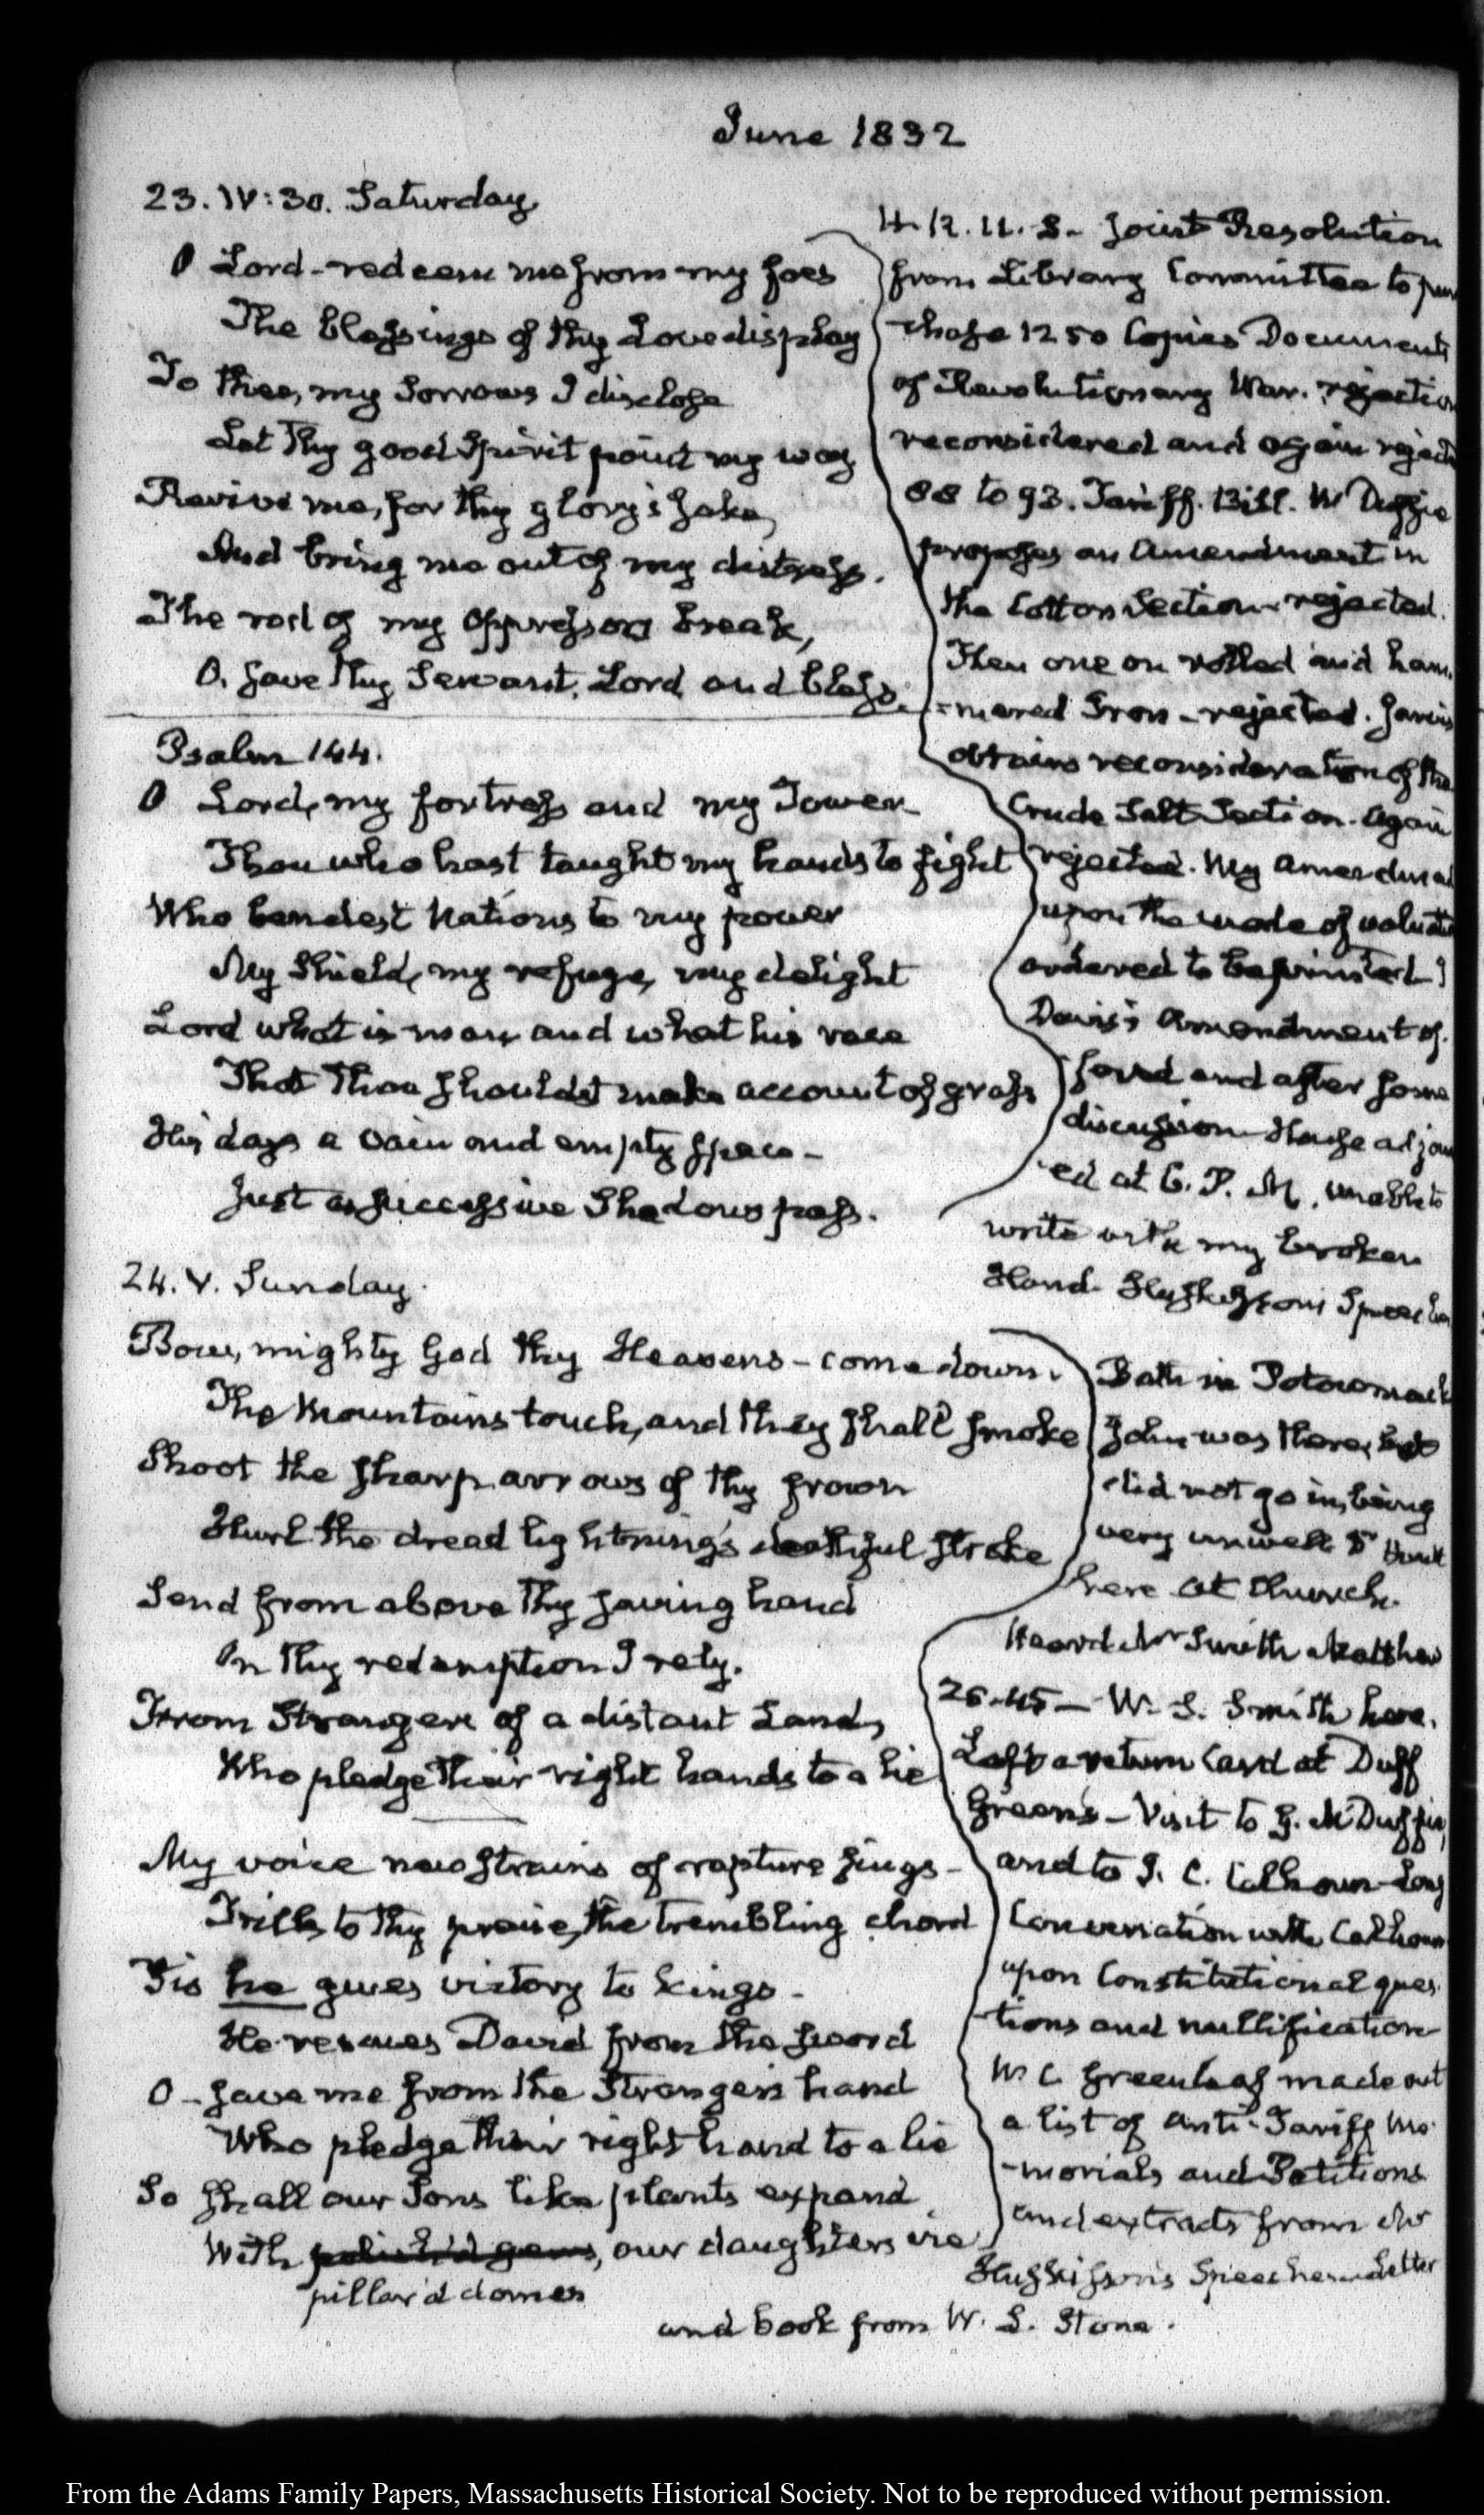 June 1832
23. IV:30. Saturday
O Lord - redeem me from my foes
The blessings of thy Love display
To thee, my Sorrows I disclose
Let Thy good Spirit point my way
Revive me, for thy glory's sake,
And bring me out of my distress.
The rod of my Oppressors break,
O, save thy Servant, Lord and bless.
Psalm 144.
O Lord, my fortress and my Tower
Thou who hast taught my hands to fight
Who bendest Nations to my power
My Shield, my refuge, my delight
Lord what is man and what his race
That Thou shouldst make account of grass
His days a vain and empty space -
Just as successive Shadows pass.
H. R. U. S. Joint Resolution
from Library Committee to pur
chase 1250 Copies Documents
of Revolutionary War. rejection
reconsidered and again reject
88 to 93. Tariff. Bill. McDuffie
proposes an Amendment in
the Cotton Section rejected.
Then one on rolled and ham
=mered Iron - rejected. Jarvis
obtains reconsideration of the
Crude Salt Section. Again
rejected. My amendment
upon the mode of valuation
ordered to be printed
Davis's Amendment of
fered and after some
discussion House adjour
ed at 6. P. M. unable to
write with my broken
Hand. Huskisson's Speeches
24. V. Sunday.
Bow, mighty God thy Heavens - come down.
The Mountains touch, and they shall smoke
Shoot the sharp arrows of thy frown
Hurl the dread lightning's deathful stroke
Send from above Thy saving hand
On Thy redemption I rely.
From Strangers of a distant Land,
Who pledge their right hands to a lie
My voice new strains of rapture sings -
Trills to thy praise, the trembling chord
Tis he gives victory to kings -
He rescues David from the sword
O - save me from the Stranger's hand
Who pledge their right hand to a lie
So shall our Sons like plants expand
With polish'd gems, our daughters vie
pillar'd domes
Bath in Potowmack
John was there, but
did not go in, being
very unwell Dr Hunt
here at Church.
Heard Mr Smith Matthew
26.45 - W. S. Smith here.
Left a return Card at Duff
Green's - Visit to G. McDuffie,
and to J. C. Calhoun - Long
Conversation with Calhoun
upon Constitutional ques
tions and nullification
W C Greenleaf made out
a list of Anti-Tariff Me
-morials and Petitions
and extracts from Mr
Huskisson's Speeches. Letter
and book from W. L. Stone.